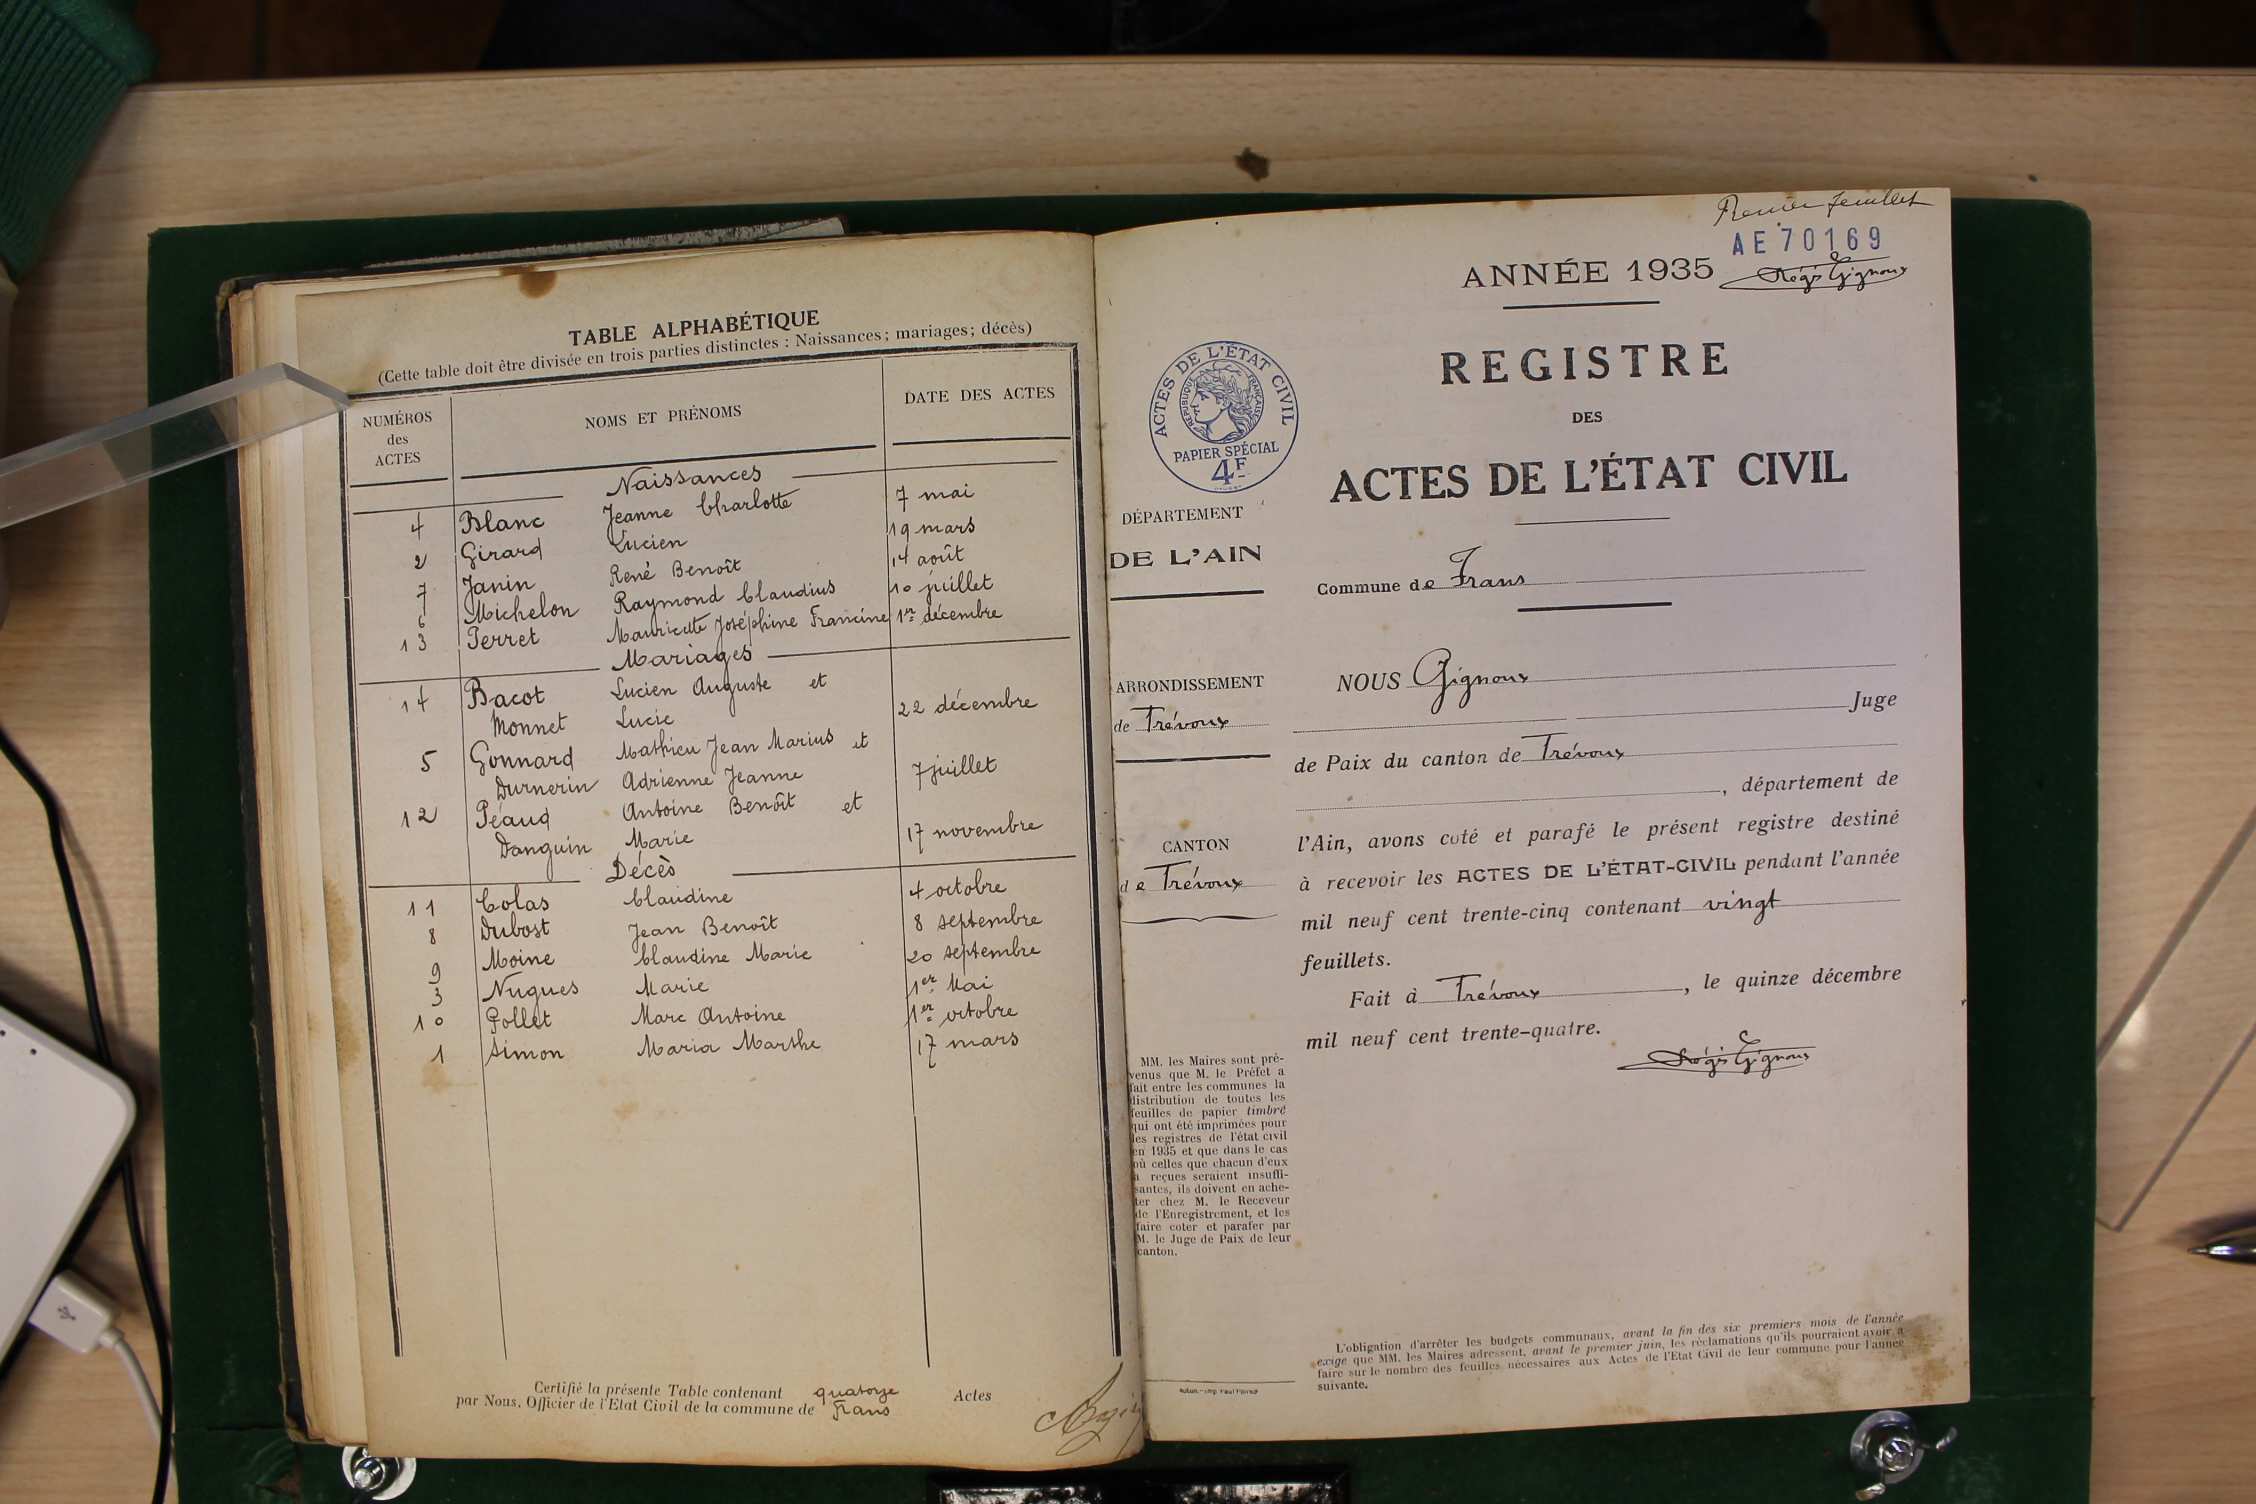 TABLE ALPHABÉTIQUE
(Cette table doit être divisée en trois parties distinctes : Naissances; mariages; décès)
NUMÉROS des ACTES NOMS ET PRÉNOMS DATE DES ACTES
Naissances
4 Blanc Jeanne Charlotte 7 mai
2 Girard Lucien 19 mars
7 Janin René Benoît 14 août
6 Michelon Raymond Claudius 10 juillet
13 Perret Mauricette Joséphine Francine 1er décembre
Mariages
14 Bacot Lucien Auguste et
Monnet Lucie 22 décembre
5 Gonnard Mathieu Jean Marius et
Durnerin Adrienne Jeanne 7 juillet
12 Péaud Antoine Benoît et
Danguin Marie 17 novembre
Décès
11 Colas Claudine 4 octobre
8 Dubost Jean Benoît 8 septembre
9 Moine Claudine Marie 20 septembre
3 Nugues Marie 1er Mai
10 Pollet Marc Antoine 1er octobre
1 Simon Maria Marthe 17 mars
Certifié la présente Table contenant quatorze Actes
par Nous, Officier de l'Etat Civil de la commune de Frans
Premier feuillet
AE70169
Régis Gignoux
ANNÉE 1935
REGISTRE
DES
ACTES DE L'ÉTAT CIVIL
ACTES DE L'ÉTAT CIVIL
RÉPUBLIQUE FRANÇAISE
PAPIER SPÉCIAL
4F
DÉPARTEMENT
DE L'AIN
ARRONDISSEMENT
de Trévoux
CANTON
de Trévoux
MM. les Maires sont pré-
venus que M. le Préfet a
fait entre les communes la
distribution de toutes les
feuilles de papier timbré
qui ont été imprimées pour
les registres de l'état civil
en 1935 et que dans le cas
où celles que chacun d'eux
a reçues seraient insuffi-
santes, ils doivent en ache-
ter chez M. le Receveur
de l'Enregistrement, et les
faire coter et parafer par
M. le Juge de Paix de leur
canton.
Commune de Frans
NOUS Gignoux
Juge
de Paix du canton de Trévoux
, département de
l'Ain, avons coté et parafé le présent registre destiné
à recevoir les ACTES DE L'ÉTAT-CIVIL pendant l'année
mil neuf cent trente-cinq contenant vingt
feuillets.
Fait à Trévoux, le quinze décembre
mil neuf cent trente-quatre.
Régis Gignoux
L'obligation d'arrêter les budgets communaux, avant la fin des six premiers mois de l'année
exige que MM. les Maires adressent, avant le premier juin, les réclamations qu'ils pourraient avoir à
faire sur le nombre des feuilles nécessaires aux Actes de l'Etat Civil de leur commune pour l'année
suivante.